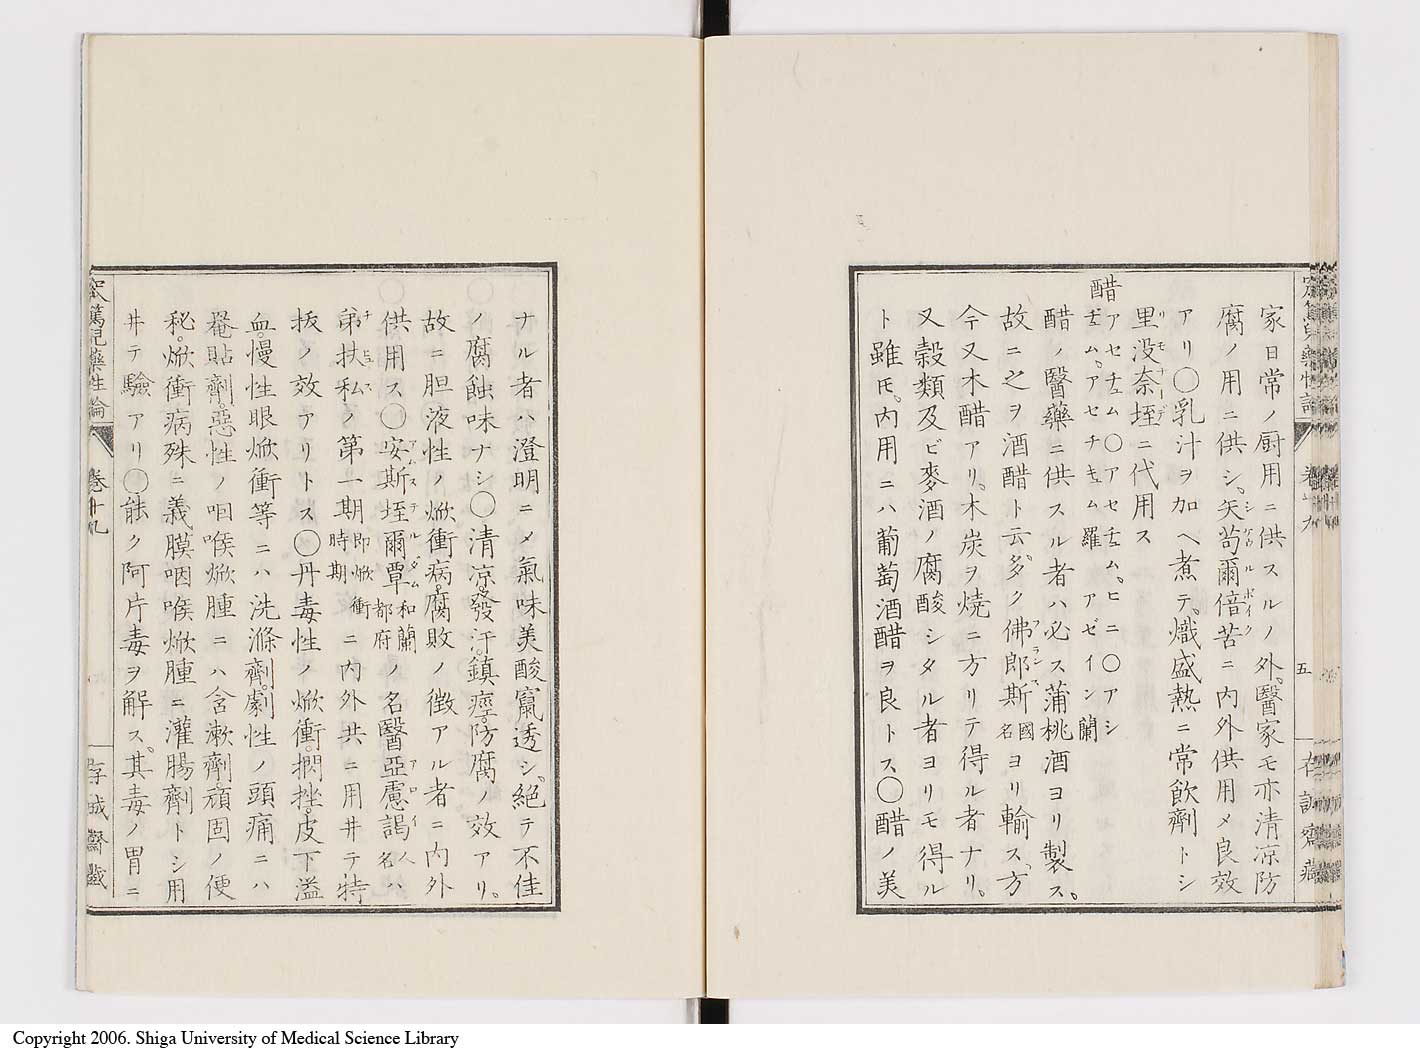 家日常ノ厨用ニ供スルノ外。醫家モ亦清凉防
腐ノ用ニ供シ。矢苟爾倍苦ニ内外供用メ良效
アリ〇乳汁ヲ加ヘ煮テ。熾盛熱ニ常飲劑トシ
里没奈垤ニ代用ス
醋
アセチュム〇アセチュム。ヒニ〇アシ
チュム。アセチキュム羅アゼイン蘭
醋ノ醫藥ニ供スル者ハ必ス蒲桃酒ヨリ製ス。
故ニ之ヲ酒醋ト云。多ク佛郎斯國名ヨリ輸ス。方
今又木醋アリ。木炭ヲ焼ニ方リテ得ル者ナリ。
又穀類及ビ麥酒ノ腐酸シタル者ヨリモ得ル
ト雖𪜈。内用ニハ葡萄酒醋ヲ良トス〇醋ノ美
五
ナル者ハ澄明ニメ氣味美酸竄透シ。絕テ不佳
ノ腐蝕味ナシ〇清凉。發汗。鎮痙。防腐ノ效アリ。
故ニ胆液性ノ焮衝病。腐敗ノ徴アル者ニ内外
供用ス〇安斯垤爾覃和蘭都府ノ名醫亞慮謁人名ハ
弟扶私ノ第一期即焮衝時期ニ内外共ニ用井テ特
抜ノ效アリトス〇丹毒性ノ焮衝。捫挫。皮下溢
血。慢性眼焮衝等ニハ洗滌劑。劇性ノ頭痛ニハ
罨貼劑。惡性ノ咽喉焮腫ニハ含漱劑。頑固ノ便
秘。焮衝病殊ニ義膜咽喉焮腫ニ灌腸劑トシ用
井テ驗アリ〇能ク阿片毒ヲ解ス。其毒ノ胃ニ
篤兒藥性論
卷十九
存誠齋藏
Copyright 2006. Shiga University of Medical Science Library